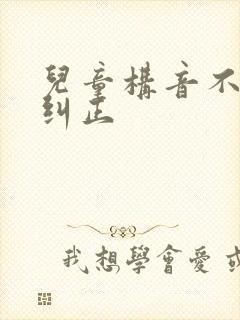 兒童構音不
糾正
我想學會愛或